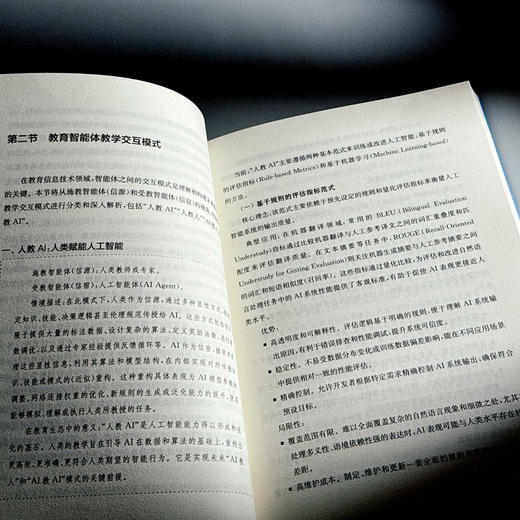 第二节 教育智能体教学交互模式
在教育信息技术领域,智能体之间的交互模式是理解和构建
的关键。本节将从施教智能体(信源)和受教智能体(信宿)的
教学交互模式进行分类和深入解析,包括“人教AI”“人教人”“AI教
教AI”。
一、人教AI:人类赋能人工智能
施教智能体(信源):人类教师或专家。
受教智能体(信宿):人工智能体(AI Agent)。
情境描述:在此模式下,人类作为信源,通过多种显性方式,
定知识、技能、决策逻辑甚至伦理规范传授给AI。这些方式包括但
限于提供大量的标注数据、设计复杂的算法、定义奖励函数、进行
数调优,以及通过专家经验提供反馈循环等。AI作为信宿,接收并
理这些显性信息,利用其算法和模型结构,在内部实现对所传授知
识、技能或模式的(近似)重构。这种重构具体表现为AI模型参数的
调整、网络连接权重的优化、新规则的生成或泛化能力的提升,使
能够模拟、理解或执行人类所教授的任务。
在教育生态中的意义:“人教AI”是人工智能能力得以形成和
化的基石。人类的教学旨在引导AI在数据和算法的基础上,重构出
更高效、更准确、更符合人类期望的智能行为。它是实现未来“AI教
人”和“AI教AI”模式的关键前提。
当前,“人教AI”主要遵循两种基本范式来训练或改进人工智能:基于规则
的评估指标(Rule-based Metrics)和基于机器学习(Machine Learning-based)
的方法。
(一)基于规则的评估指标范式
核心理念:该范式主要依赖于预先设定的规则和量化评估指标来衡量人工
智能系统的输出质量。
典型应用:在机器翻译领域,常用的BLEU(Bilingual Evaluation
Understudy)指标通过比较机器翻译与人工参考译文之间的词汇重叠度和匹
配度来评估翻译质量。在文本摘要等任务中,ROUGE(Recall-Oriented
Understudy for Gisting Evaluation)则关注机器生成摘要与人工参考摘要之间
的词汇和短语相似度(召回率)。这些指标通过量化比较,为评估和改进自然语
言处理任务中的AI系统性能提供了客观标准,有助于促使AI表现更接近人
类水平。
优势:
■ 高透明度和可解释性。评估逻辑基于明确的规则,便于理解AI系统输
出原因,有利于错误排查和性能调试,提升系统可信度。
■ 稳定性。不易受数据分布变化或训练数据偏差影响,能在不同应用场景
中提供相对一致的性能评估。
■ 精确控制。允许开发者根据特定需求精确控制AI系统输出,确保符合
预设目标。
局限性:
■ 覆盖范围有限。难以全面覆盖复杂的自然语言现象和细微之处,尤其
处理多义性、语境依赖性强的表达时,AI表现可能与人类水平存在
差距。
■ 高维护成本。制定、维护和更新一套全面的规则